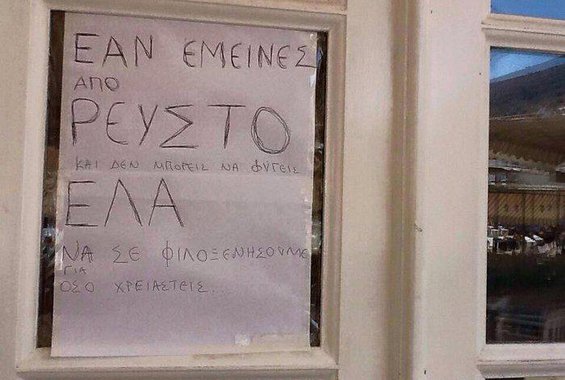 ΕΑΝ ΕΜΕΙΝΕΣ
ΑΠΟ
ΡΕΥΣΤΟ
ΚΑΙ ΔΕΝ ΜΠΟΡΕΙΣ ΝΑ ΦΥΓΕΙΣ
ΕΛΑ
ΝΑ ΣΕ ΦΙΛΟΞΕΝΗΣΟΥΜΕ
ΓΙΑ
ΟΣΟ ΧΡΕΙΑΣΤΕΙΣ...